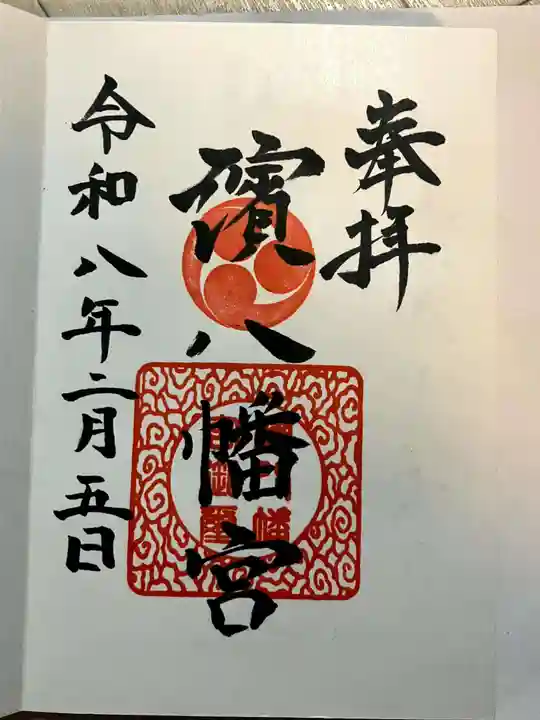 奉拝
濱八幡宮
令和八年二月五日